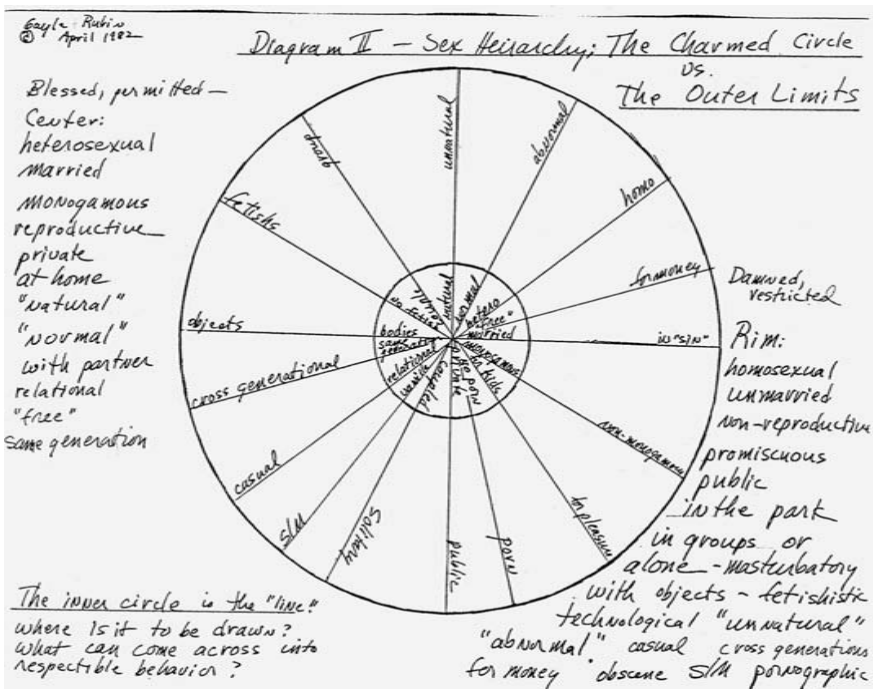 Gayle Rubin
© April 1982
Diagram II – Sex Heirarchy: The Charmed Circle
vs.
The Outer Limits
Blessed, permitted –
Center:
heterosexual
married
monogamous
reproductive
private
at home
"natural"
"normal"
with partner
relational
"free"
same generation
unnatural
abnormal
homo
for money
in "sin"
non-monogamous
for pleasure
porn
public
solitary
S/M
casual
cross generational
objects
fetishs
natural
normal
hetero
"free"
married
monogamous
for kids
no porn
private
coupled
vanilla
relational
same
generation
bodies
no fetish
Damned,
restricted
Rim:
homosexual
unmarried
non-reproductive
promiscuous
public
in the park
in groups or
alone – masturbatory
with objects – fetishistic
technological "unnatural"
"abnormal" casual cross generations
for money obscene S/M pornographic
The inner circle is the "line."
where is it to be drawn?
What can come across into
respectible behavior?